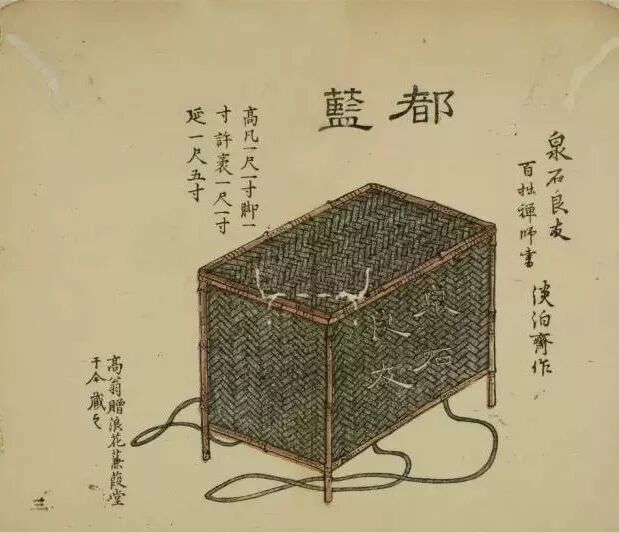 都藍
泉石良友
百拙禪師書
淡泊齋作
高凡一尺一寸脚一
寸許袤一尺一寸
延一尺五寸
泉石
良友
高翁贈浪花蒹葭堂
于今藏之
三